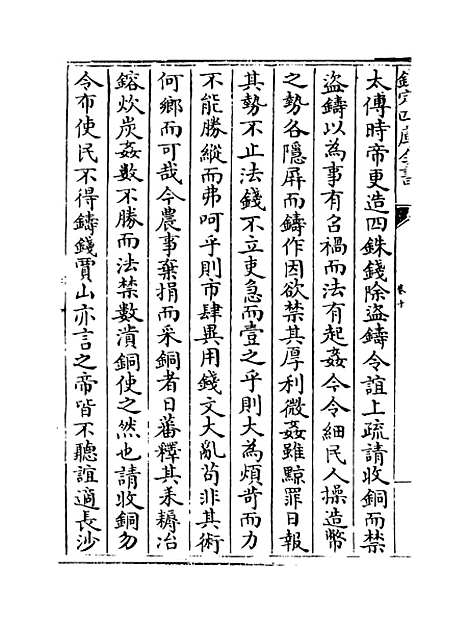 欽定四庫全書
卷十
太傅時帝更造四銖錢除盜鑄令誼上疏請收銅而禁
盜鑄以為事有召禍而法有起姦今令細民人操造幣
之勢各隱屏而鑄作因欲禁其厚利微姦雖黥罪日報
其勢不止法錢不立吏急而壹之乎則大為煩苛而力
不能勝縱而弗呵乎則市肆異用錢文大亂苟非其術
何鄉而可哉今農事棄捐而采銅者日蕃釋其耒耨冶
鎔炊炭姦數不勝而法禁數潰銅使之然也請收銅勿
令布使民不得鑄錢賈山亦言之帝皆不聽誼適長沙